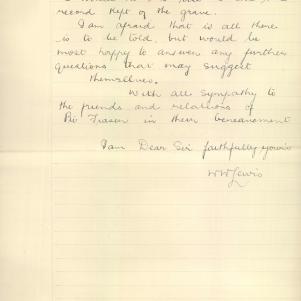 record kept of the grave.
I am afraid that is all there
is to be told, but would be
most happy to answer any further
questions that may suggest
themselves.
With all sympathy to
the friends and relations of
Pte Fraser in their bereavement
I am Dear Sir faithfully yours
W W Lewis